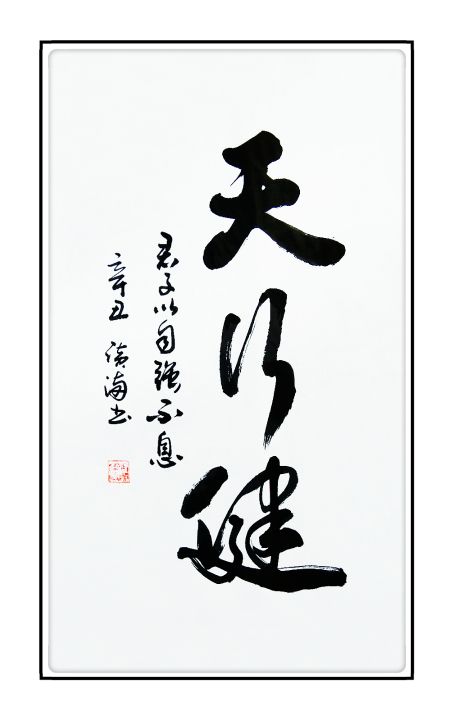 天行健
君子以自强不息
辛丑 海书